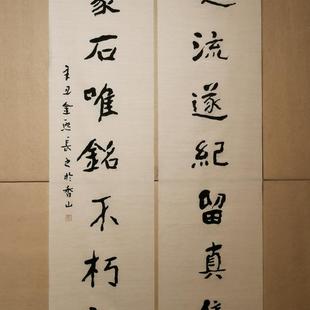 流遂紀留真
石唯銘不朽
辛丑金延長之於香山